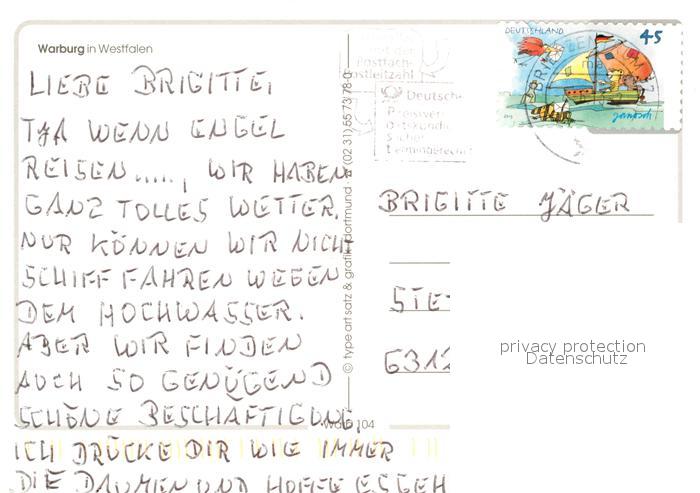 Warburg in Westfalen
LIEBE BRIGITTE,
TJA WENN ENGEL
REISEN....., WIR HABEN
GANZ TOLLES WETTER.
NUR KÖNNEN WIR NICHT
SCHIFF FAHREN WEGEN
DEM HOCHWASSER.
ABER WIR FINDEN
AUCH SO GENÜGEND
SCHÖNE BESCHÄFTIGUNG.
ICH DRÜCKE DIR WIE IMMER
DIE DAUMEN UND HOFFE ES GEH
© type art satz & grafik dortmund · ☎ (02 31) 55 73 78-0
104
mit der
Postfach-
Postleitzahl
Deutsch
DEUTSCHLAND
45
janosch
BRIGITTE JÄGER
STE
6312
privacy protection
Datenschutz